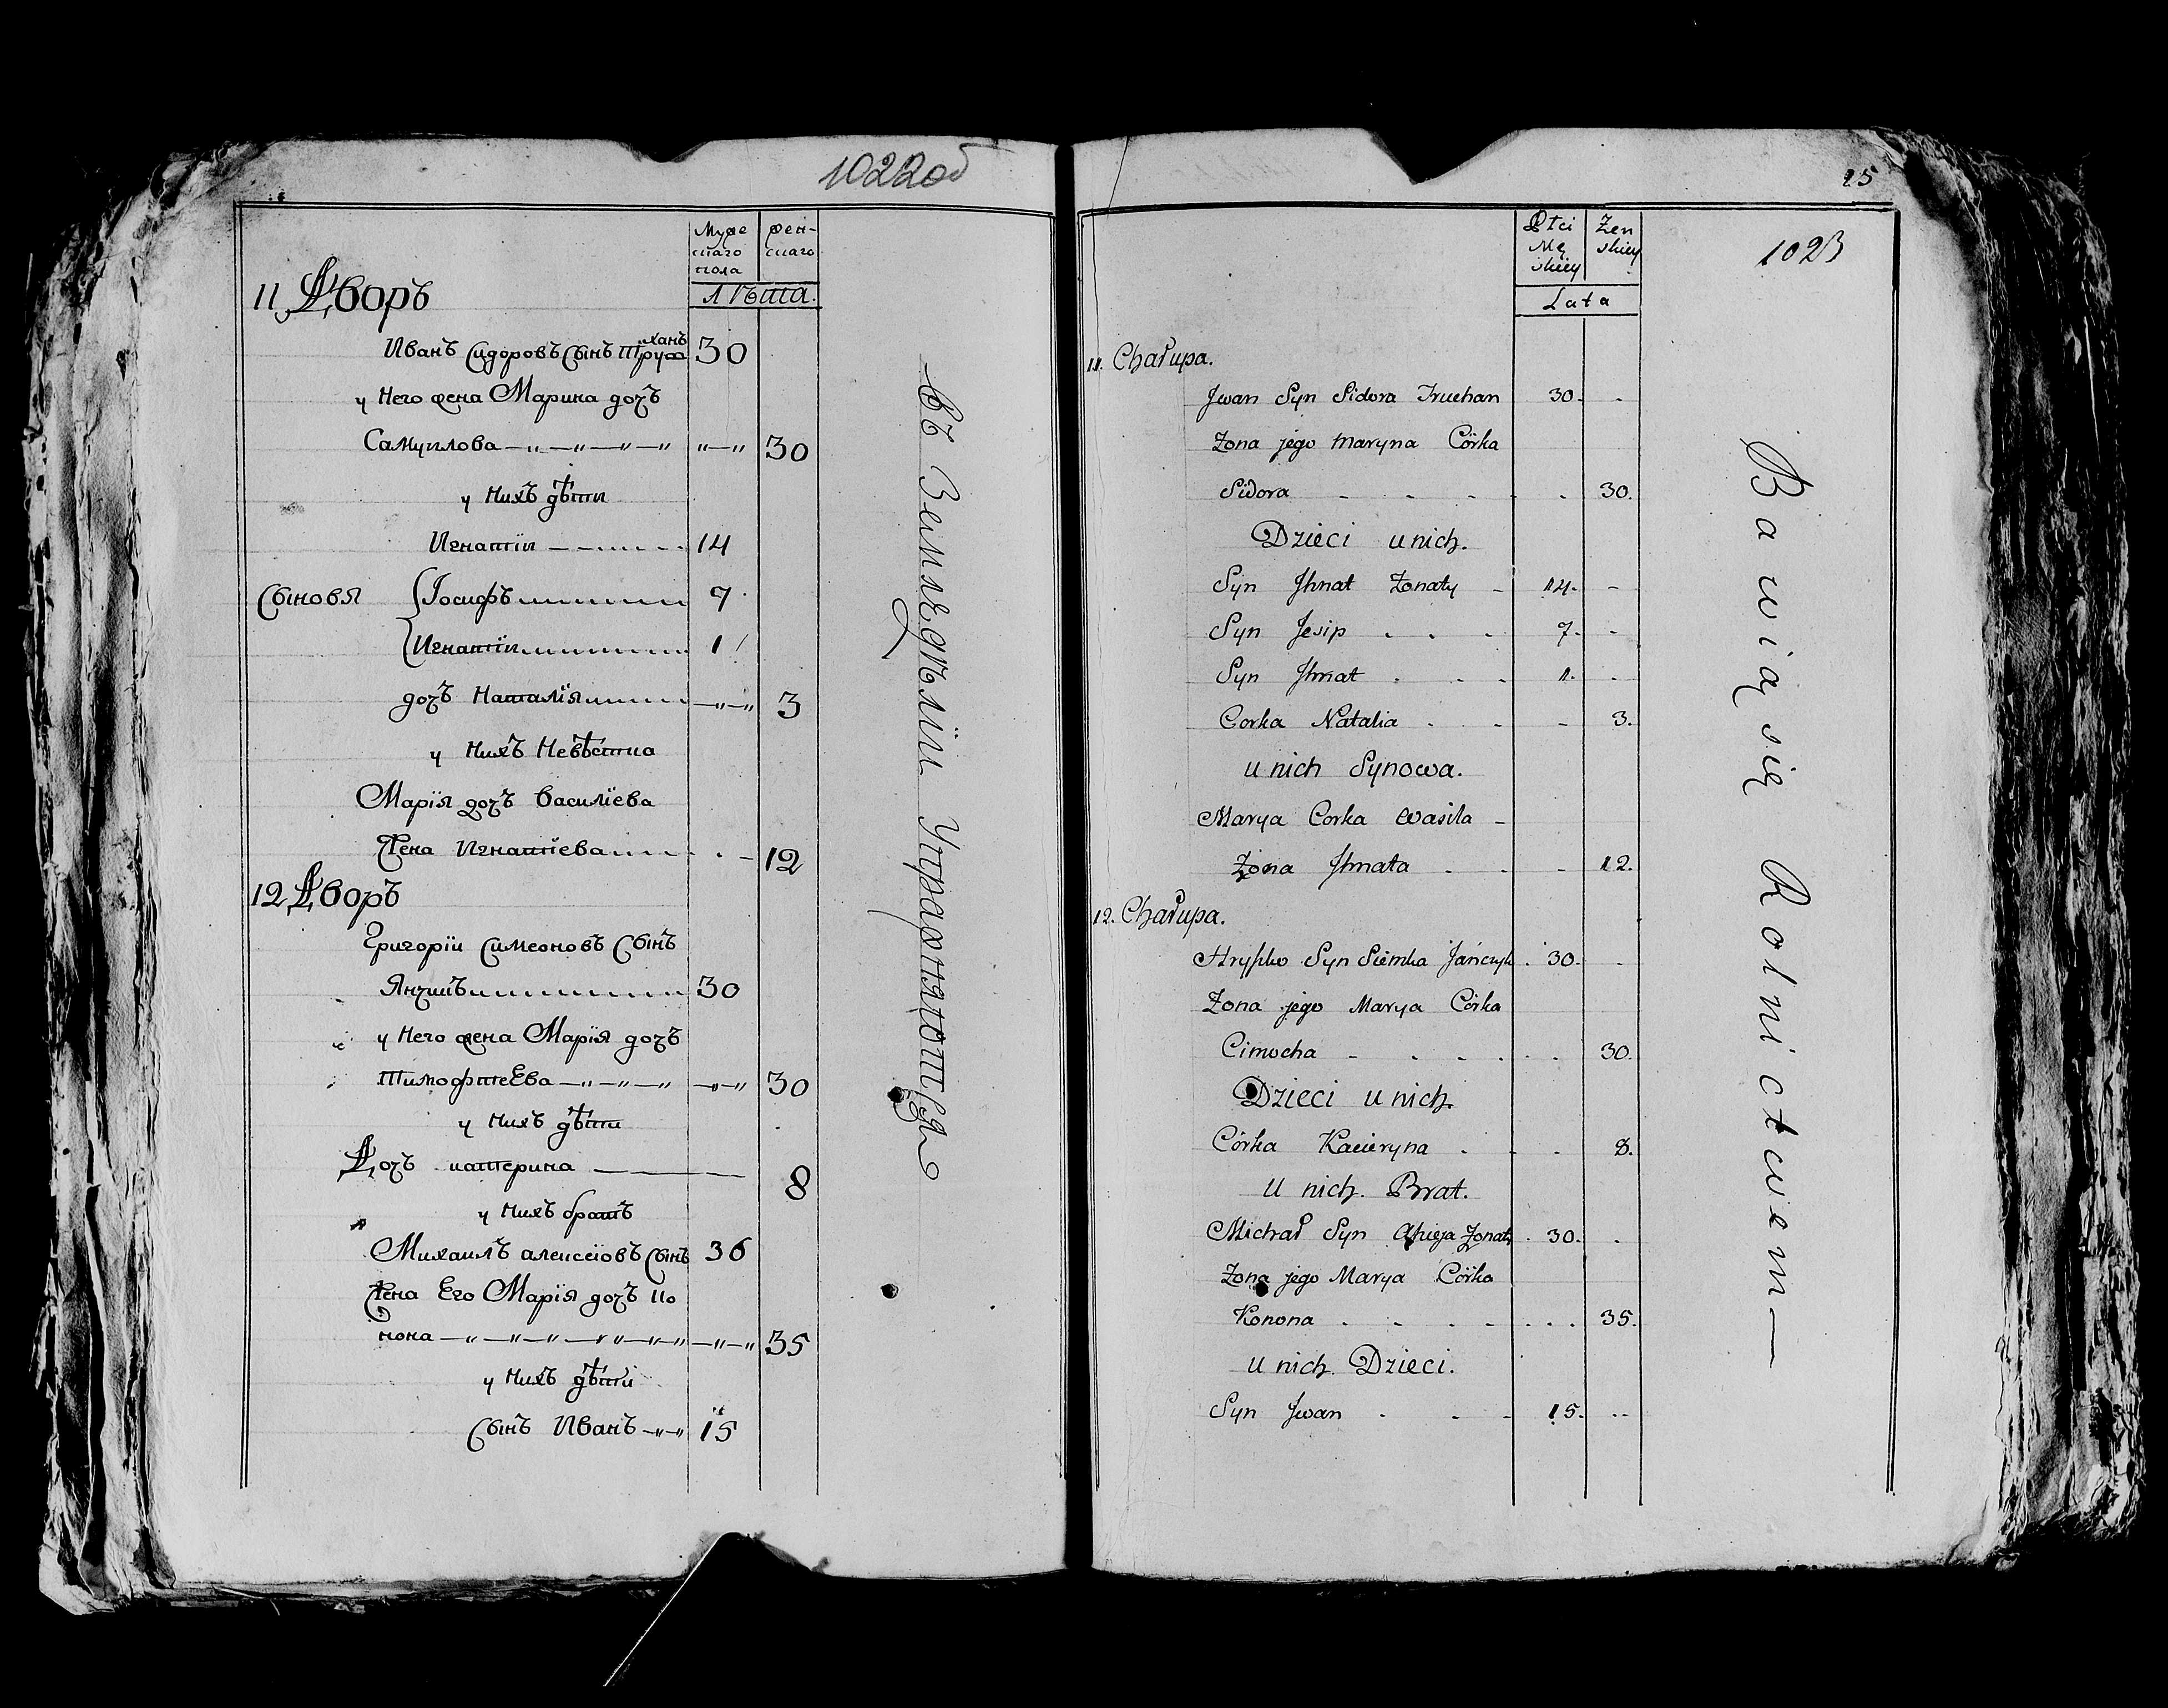 1022об
Муже
скаго
пола
жен-
скаго
Лѣта.
11 Дворъ
Иванъ Сидоровъ Сынъ Труханъ 30
у Него жена Марина дочь
Самуилова 30
у Нихъ дѣти
Игнатiи 14
Сыновя Iосифъ 7
Игнатiи 1
дочь Наталiя 3
у Нихъ Невѣстка
Марiя дочь Василiева
Жена Игнатiева 12
12 Дворъ
Григорiи Симеоновъ Сынъ
Янчикъ 30
у Него жена Марiя дочь
Тимофтеева 30
у Нихъ дѣти
Дочь катерина 8
у Нихъ братъ
Михаилъ алексеiовъ Сынъ 36
Жена Его Марiя дочь Ко
нона 35
у Нихъ дѣти
Сынъ Иванъ 15
въ Земледѣлiи Упражняются
15
1023
Płci
Mę
skiey
Żen
skiey
Lata
11. Chałupa.
Jwan Syn Sidora Truchan 30.
Żona jego Maryna Córka
Sidora 30.
Dzieci u nich.
Syn Jhnat Żonaty 14.
Syn Jesip 7.
Syn Jhnat 1.
Corka Natalia 3.
u nich Synowa.
Marya Corka Wasila
Żona Jhnata 12.
12. Chałupa.
Hryśko Syn Siemka Jańczyk 30.
Żona jego Marya Córka
Cimocha 30.
Dzieci u nich.
Córka Kacieryna 8.
U nich Brat.
Michał Syn Żonaty 30.
Żona jego Marya Córka
Konona 35.
u nich Dzieci.
Syn Jwan 15.
Bawią się Rolnictwem